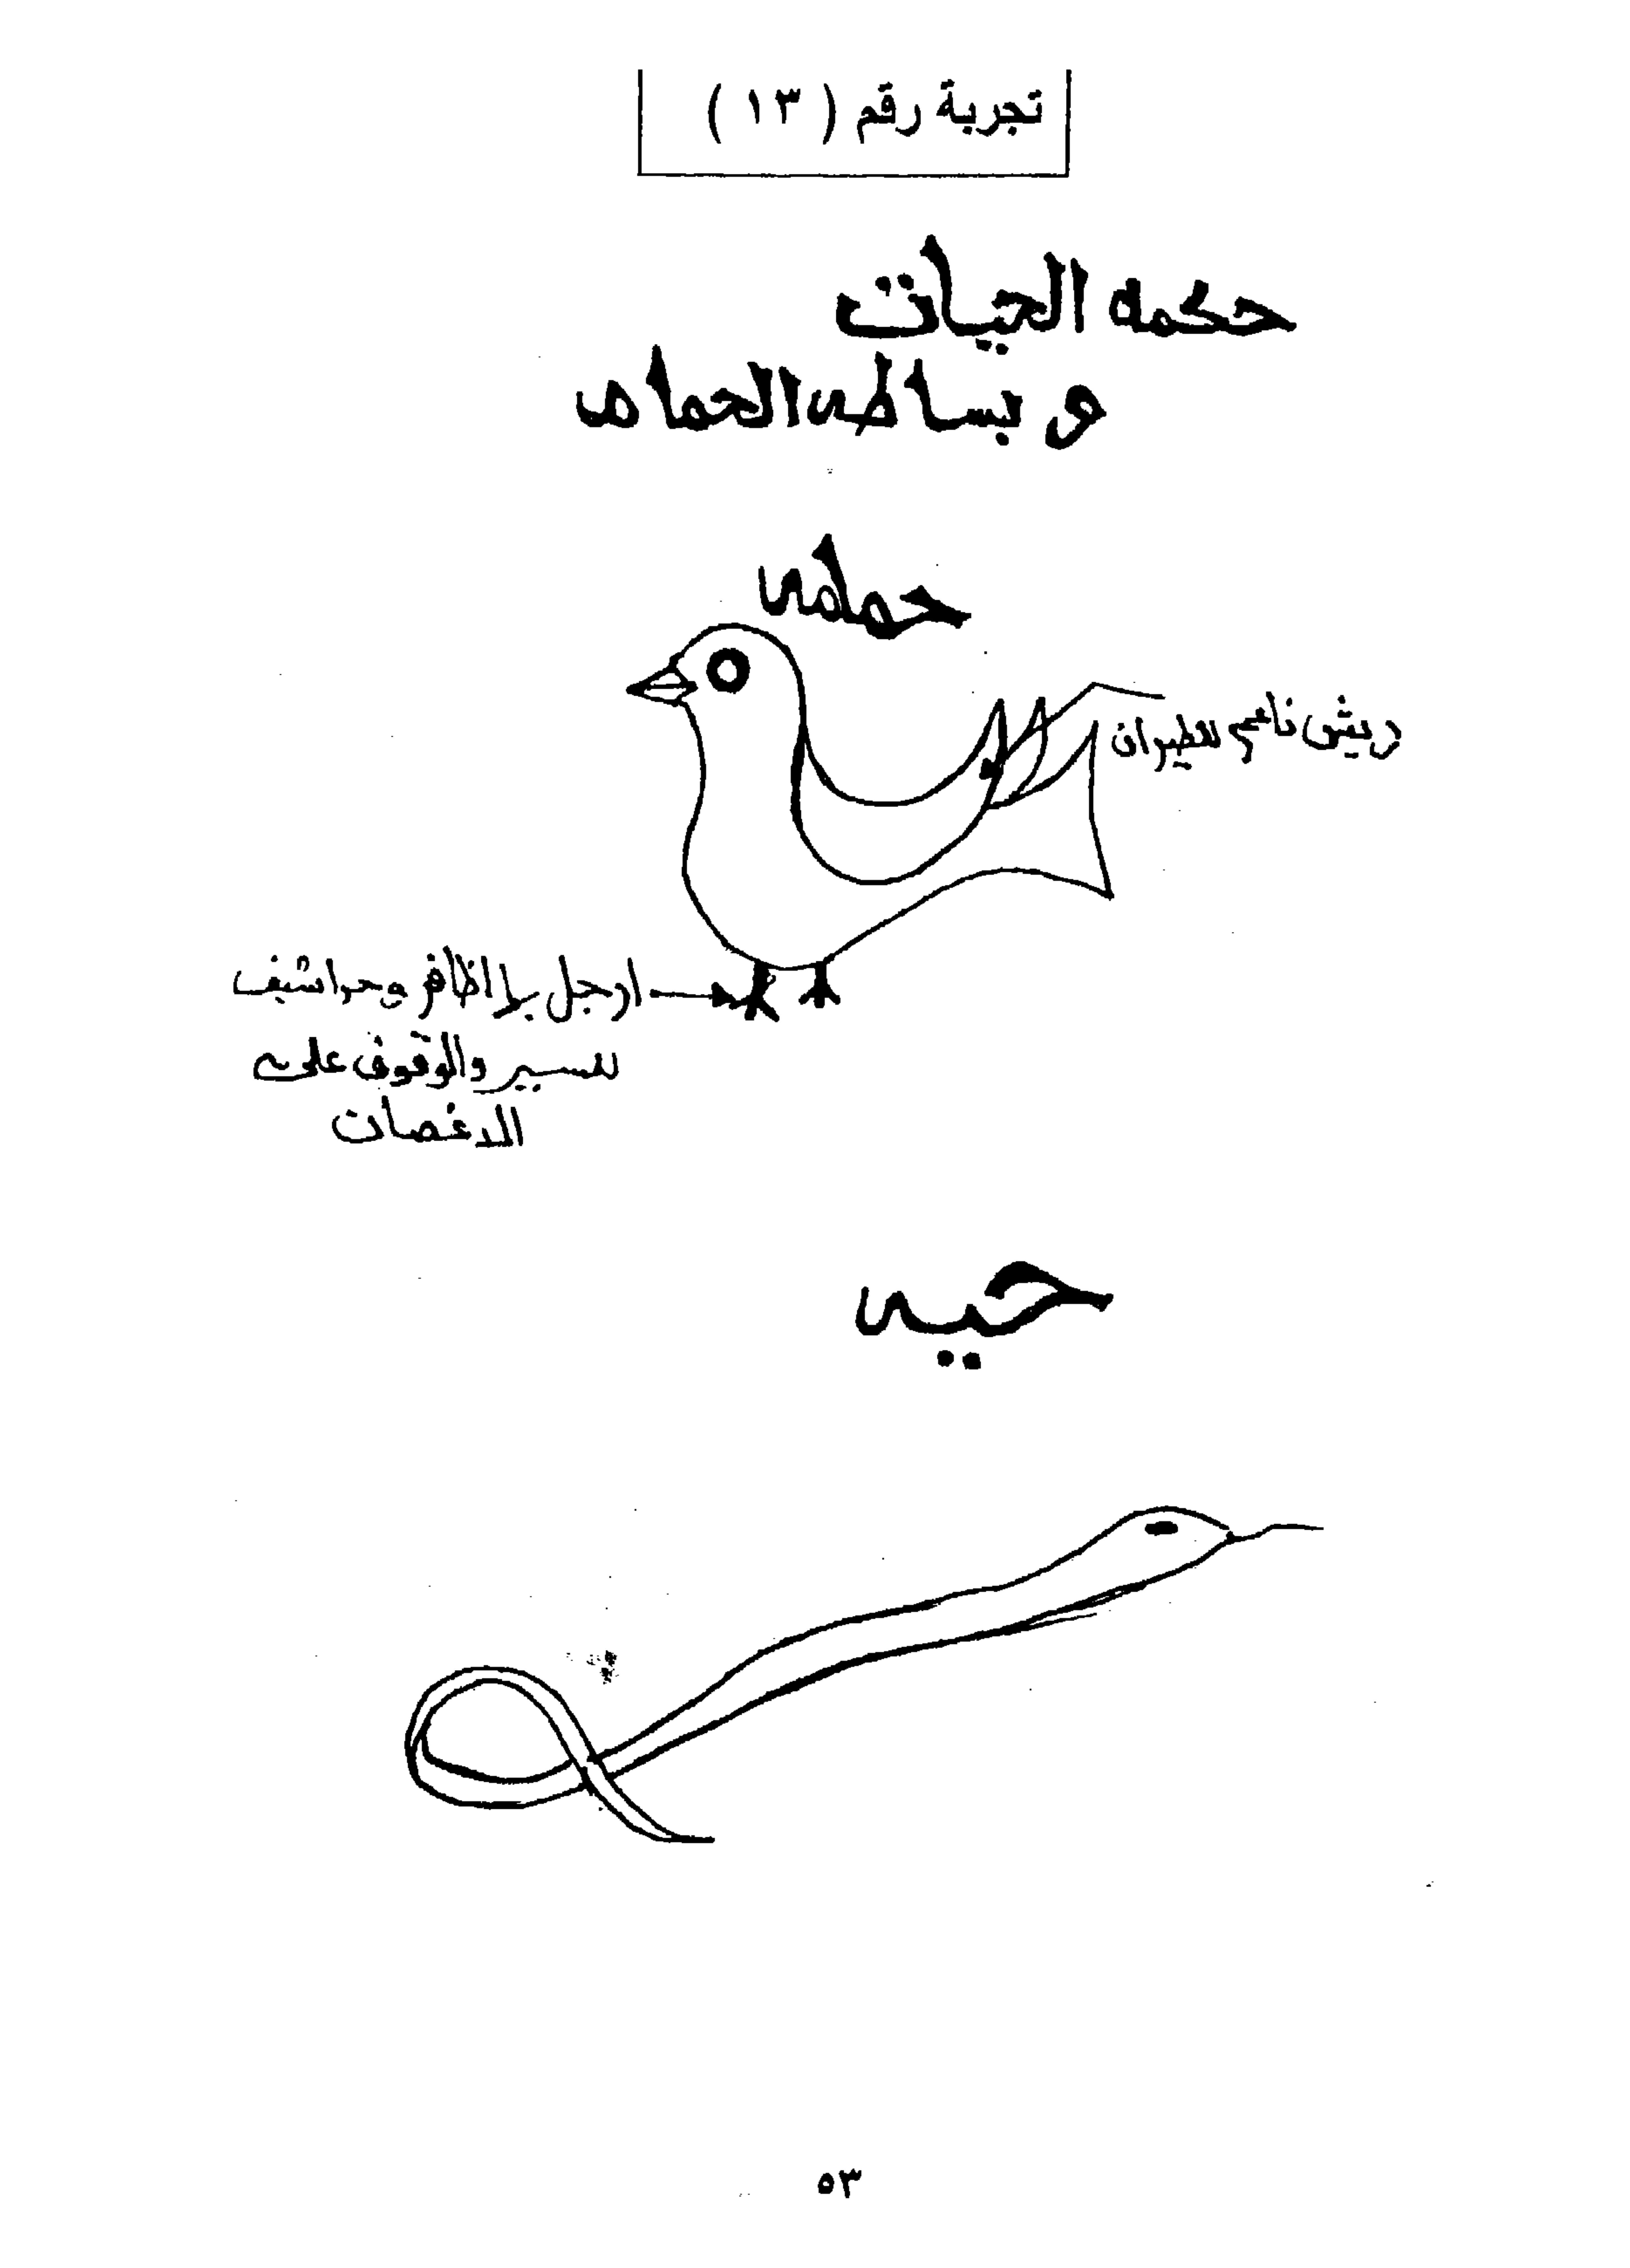 تجربة رقم ( ١٣ )
حكمه الحيات
و بساطه الحمام
حمامه
ريش ناعم للطيران
ارجل بها اظافر وحراشيف
للسير والوقوف على
الاغصان
حيه
٥٣